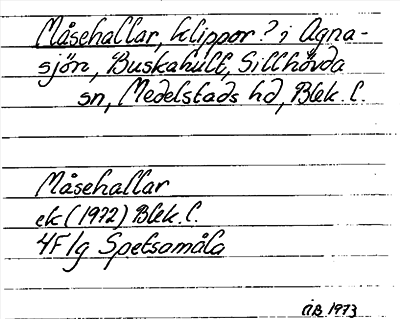 Måsehallar, klippor? i Agna-
sjön, Buskahult, Sillhövda
sn, Medelstads hd, Blek. l.
Måsehallar
ek (1972) Blek. l.
4F/g Spetsamåla
ÅB 1973